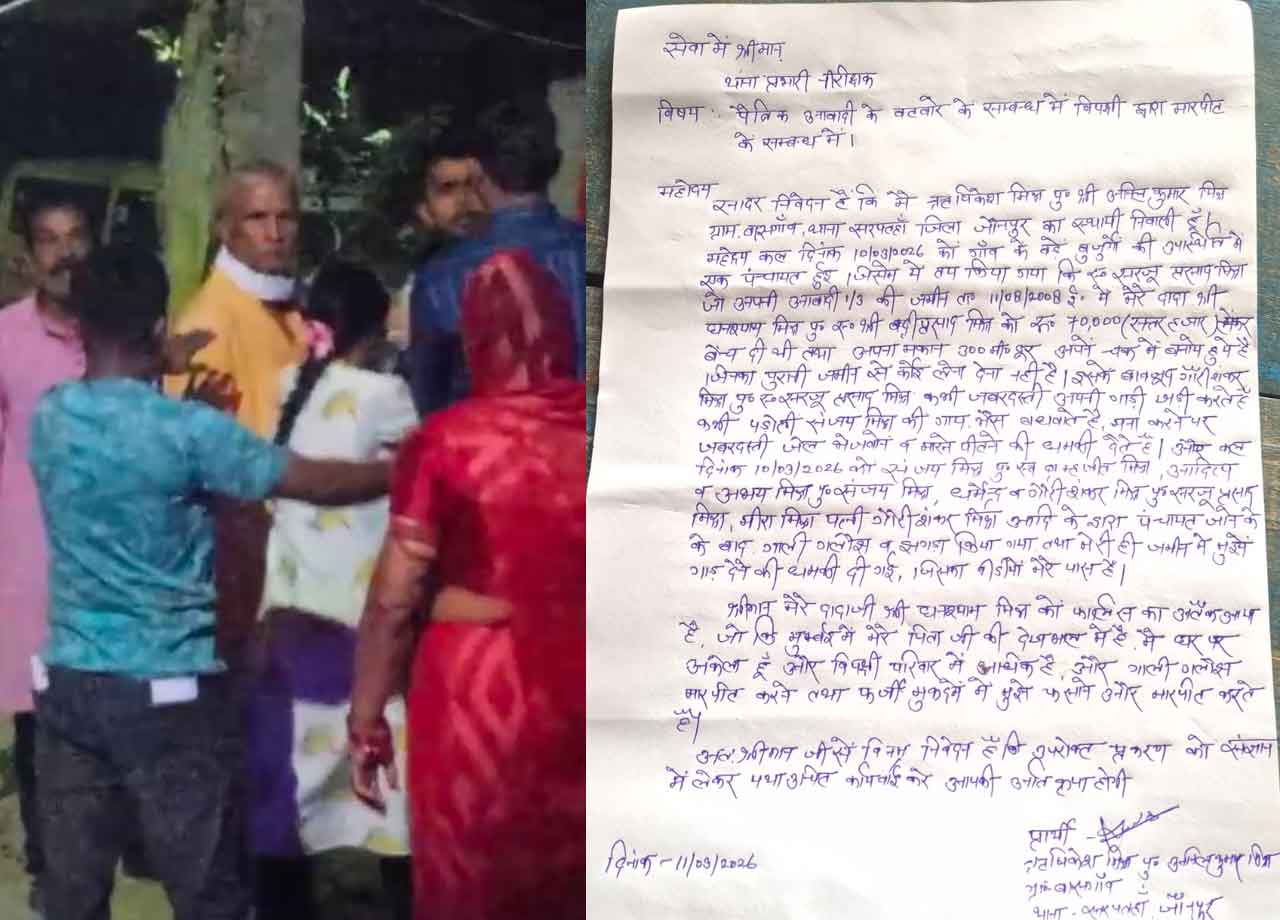 सेवा में श्रीमान्
थाना प्रभारी निरीक्षक
विषय : पैत्रिक आबादी के बटवारे के सम्बन्ध में विपक्षी द्वारा मारपीट
के सम्बन्ध में।
महोदय
सादर निवेदन है कि मै ऋषिकेश मिश्र पु० श्री अनिल कुमार मिश्र
ग्राम बासगाँव, थाना सरपतहाँ जिला जौनपुर का स्थायी निवासी हूँ।
महोदय कल दिनांक 10/03/2026 को गाँव के बड़े बुजुर्गो की उपस्थिति में
एक पंचायत हुई। जिसमे में तय किया गया कि स्व० सरजू प्रसाद मिश्रा
जो अपनी आबादी 1/3 की जमीन ता० 11/08/2008 ई. में मेरे दादा श्री
घनश्याम मिश्र पु० स्व० श्री बद्रीप्रसाद मिश्र को रू० 70,000 (सत्तर हजार) लेकर
बेच दी थी तथा अपना मकान 300 मी० दूर अपने चक में बनाये हुये है
जिनका पुरानी जमीन से कोई लेना देना नही है। इसके बावजूद गौरीशंकर
मिश्र पु० स्व० सरजू प्रसाद मिश्र कभी जबरदस्ती अपनी गाड़ी खड़ी करते है
कभी पड़ोसी संजय मिश्र की गाय, भैंस बधवाते है, मना करने पर
जबरदस्ती जेल भेजवाने व मारने पीटने की धमकी देते हैं। और कल
दिनांक 10/03/2026 को संजय मिश्र पु० स्व० जीत मिश्र, आदित्य
व अभय मिश्र पु० संजय मिश्र, धर्मेन्द्र व गौरीशंकर मिश्र पु० सरजू प्रसाद
मिश्रा, मीरा मिश्रा पत्नी गौरीशंकर मिश्रा आदि के द्वारा पंचायत जाने के
के बाद गाली गलौज व झगड़ा किया गया तथा मेरी ही जमीन में मुझे
गाड़ देने की धमकी दी गई, जिसका वीडियो मेरे पास है।
श्रीमान मेरे दादाजी श्री घनश्याम मिश्र को फालिस का अटैक आया
है, जो कि मुम्बई में मेरे पिता जी की देखभाल में है, मै घर पर
अकेला हूँ और विपक्षी परिवार में अधिक है, और गाली गलौज
मारपीट करने तथा फर्जी मुकदमें में मुझे फसाने और मारपीट करते
हैं।
अतः श्रीमान जी से विनम्र निवेदन है कि उपरोक्त प्रकरण को संज्ञान
में लेकर यथा उचित कार्यवाई करे आपकी अति कृपा होगी
प्रार्थी -
दिनांक - 11/03/2026
ऋषिकेश मिश्र पु० अनिल कुमार मिश्र
ग्राम बासगाँव
थाना - सरपतहाँ जौनपुर